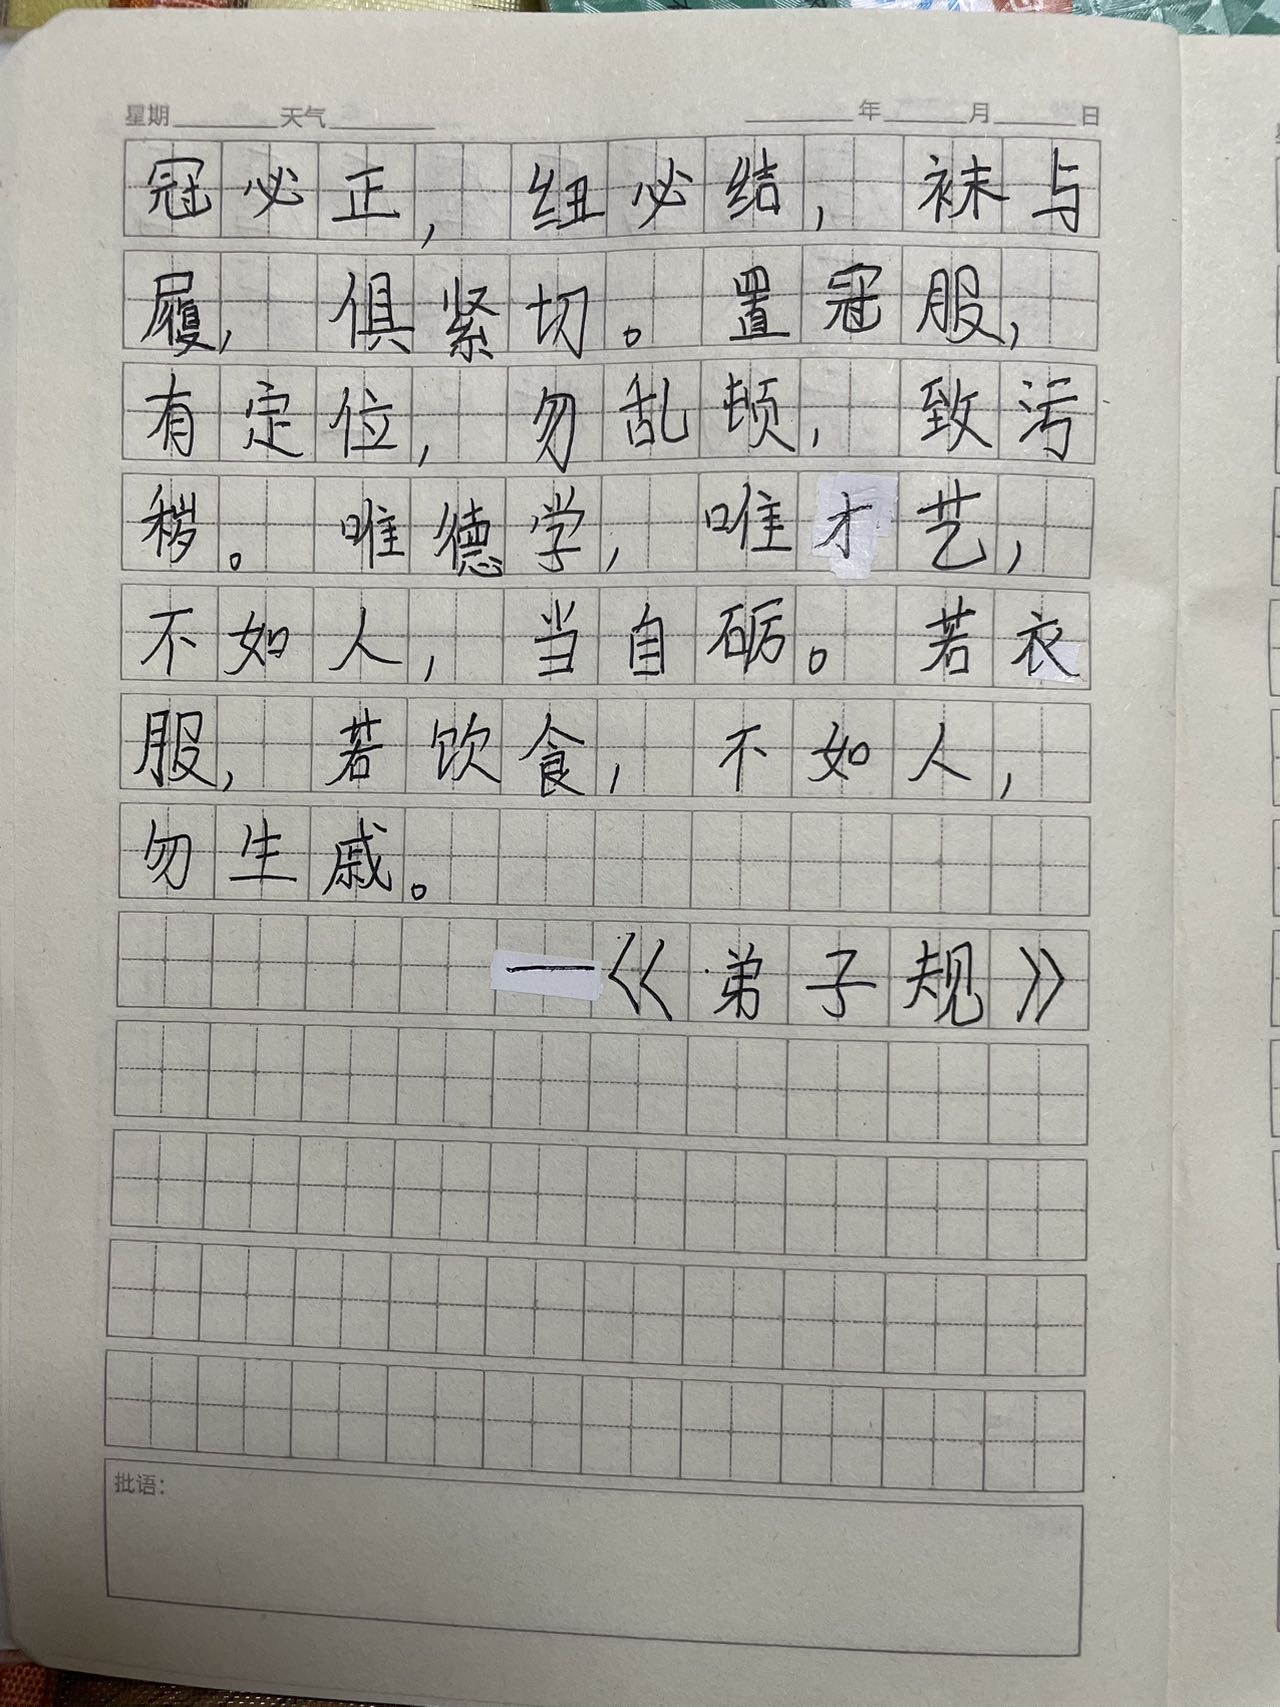 星期____天气____ ____年____月____日
冠必正，纽必结，袜与
履，俱紧切。置冠服，
有定位，勿乱顿，致污
秽。唯德学，唯才艺，
不如人，当自砺。若衣
服，若饮食，不如人，
勿生戚。
—《弟子规》
批语：